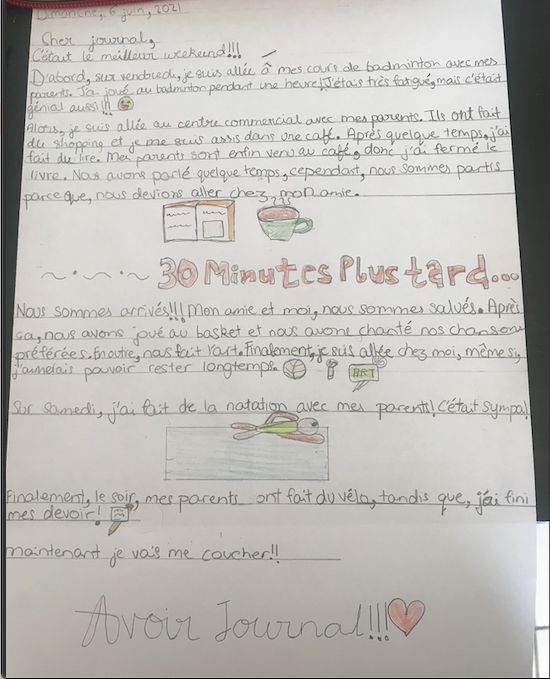 Dimanche, 6 juin, 2021
Cher journal,
C'était le meilleur weekend!!!
D'abord, sur vendredi, je suis allée à mes cours de badminton avec mes
parents. J'ai joué au badminton pendant une heure! J'étais très fatigué, mais c'était
génial aussi!!!
Alors, je suis allée au centre commercial avec mes parents. Ils ont fait
du shopping et je me suis assis dans une café. Après quelque temps, j'ai
fait du lire. Mes parents sont enfin venu au café, donc j'ai fermé le
livre. Nous avons parlé quelque temps, cependant, nous sommes partis
parce que, nous devions aller chez mon amie.
30 Minutes Plus tard...
Nous sommes arrivés!!! Mon amie et moi, nous sommes salués. Après
ça, nous avons joué au basket et nous avons chanté nos chansons
préférées. En outre, nous fait l'art. Finalement, je suis allée chez moi, même si,
j'aimelais pouvoir rester longtemps.
ART
Sur samedi, j'ai fait de la natation avec mes parents! C'était sympa!
Finalement, le soir, mes parents ont fait du vélo, tandis que, j'ai fini
mes devoir!
maintenant je vais me coucher!!
Avoir Journal!!!